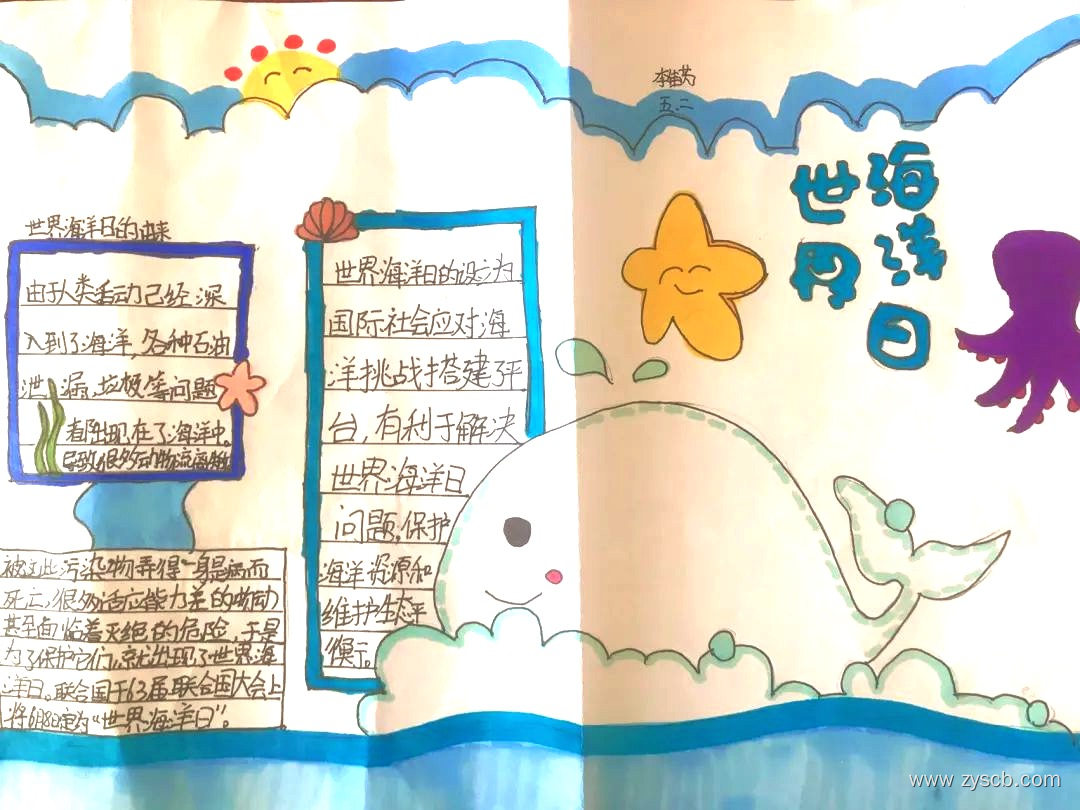 五.二
世界
海洋日
世界海洋日的由来
由于人类活动已经深
入到了海洋,各种石油
泄漏,垃圾等问题
都出现在了海洋中。
导致很多动物流离
被这些污染物弄得一身是病而
死亡,很多适应能力差的动物
甚至面临着灭绝的危险,于是
为了保护它们,就出现了世界海
洋日。联合国于63届联合国大会上
将6月8日定为“世界海洋日”。
世界海洋日的设立为
国际社会应对海
洋挑战搭建了平
台,有利于解决
世界海洋日
问题,保护
海洋资源和
维护生态平
衡。
www.zyscb.com